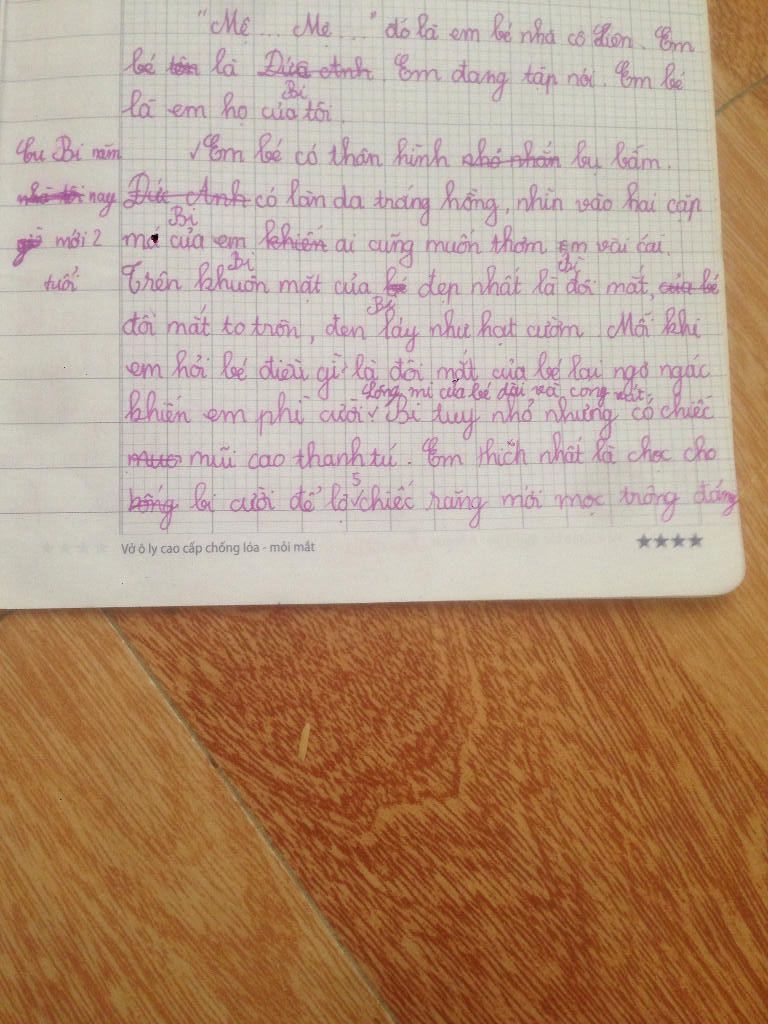 "Mệ ... Mẹ ..." đó là em bé nhà cô Liên. Em
bé tên là Đức Anh. Em đang tập nói. Em bé
Bi
là em họ của tôi.
Cu Bi năm
nay
mới 2
tuổi
√ Em bé có thân hình nhỏ nhắn bụ bẫm.
Đức Anh có làn da trắng hồng, nhìn vào hai cặp
Bi
má của em khiến ai cũng muốn thơm em vài cái.
Bi
Bi
Trên khuôn mặt của bé đẹp nhất là đôi mắt, của bé
Bi
đôi mắt to tròn, đen láy như hạt cườm. Mỗi khi
em hỏi bé điều gì là đôi mắt của bé lại ngơ ngác
Lông mi của bé dài và cong vút.
khiến em phì cười √ Bi tuy nhỏ nhưng có chiếc
mũi cao thanh tú. Em thích nhất là chọc cho
5
bi cười để lộ √ chiếc răng mới mọc trông đáng
Vở ô ly cao cấp chống lóa - mỏi mắt